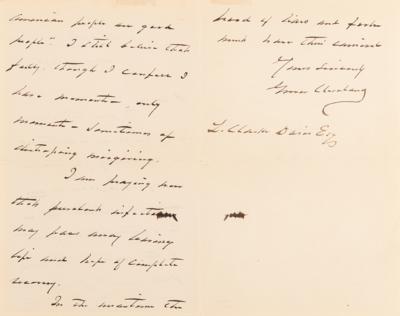 American people are good
people". I still believe that
fully, though I confess I
have moments - only
moments - sometimes of
misgiving.
I am praying now
that
may pass away leaving
life and hope of complete
recovery.
In the meantime the
brood of liars and fools
must have their carnival
Yours Sincerely
Grover Cleveland
L. Clarke Davis Esq